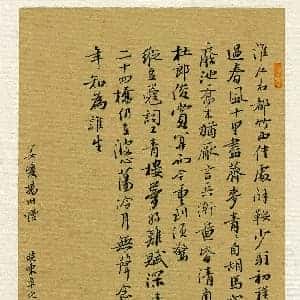 淮左名都竹西佳處解鞍少駐初程
過春風十里盡薺麥青自胡馬
廢池喬木猶厭言兵漸黃昏清角
杜郎俊賞算而今重到須驚
縱豆蔻詞工青樓夢好難賦深情
二十四橋仍在波心蕩冷月無聲念
年知為誰生
姜夔揚州慢